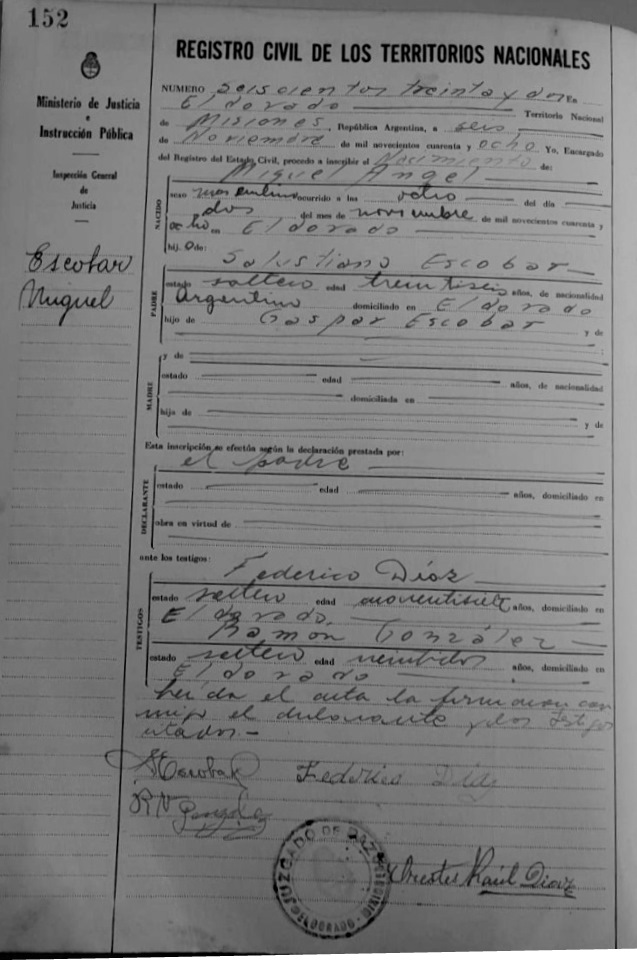 152
REGISTRO CIVIL DE LOS TERRITORIOS NACIONALES
Ministerio de Justicia
e
Instrucción Pública
Inspección General
de
Justicia
Escobar
Miguel
NUMERO seiscientos treinta y dos En
Eldorado Territorio Nacional
de Misiones, República Argentina, a seis
de Noviembre de mil novecientos cuarenta y ocho Yo, Encargado
del Registro del Estado Civil, procedo a inscribir el Nacimiento de:
Miguel Angel
NACIDO
sexo masculino ocurrido a las ocho del día
dos del mes de noviembre de mil novecientos cuarenta y
ocho en Eldorado
hijo de:
Salustiano Escobar
PADRE
estado soltero edad treintiseis años, de nacionalidad
Argentino domiciliado en Eldorado
hijo de Gaspar Escobar y de
MADRE
y de
estado edad años, de nacionalidad
domiciliada en
hija de y de
Esta inscripción se efectúa según la declaración prestada por:
el padre
DECLARANTE
estado edad años, domiciliado en
obra en virtud de
ante los testigos:
Federico Díaz
TESTIGOS
estado soltero edad cuarentisiete años, domiciliado en
Eldorado.
Ramon González
estado soltero edad veintidos años, domiciliado en
Eldorado
leida el acta la firmaron con
migo el declarante y los testigos
citados.-
Escobar Federico Díaz
JUZGADO DE PAZ
ELDORADO
Orestes Raúl Diaz